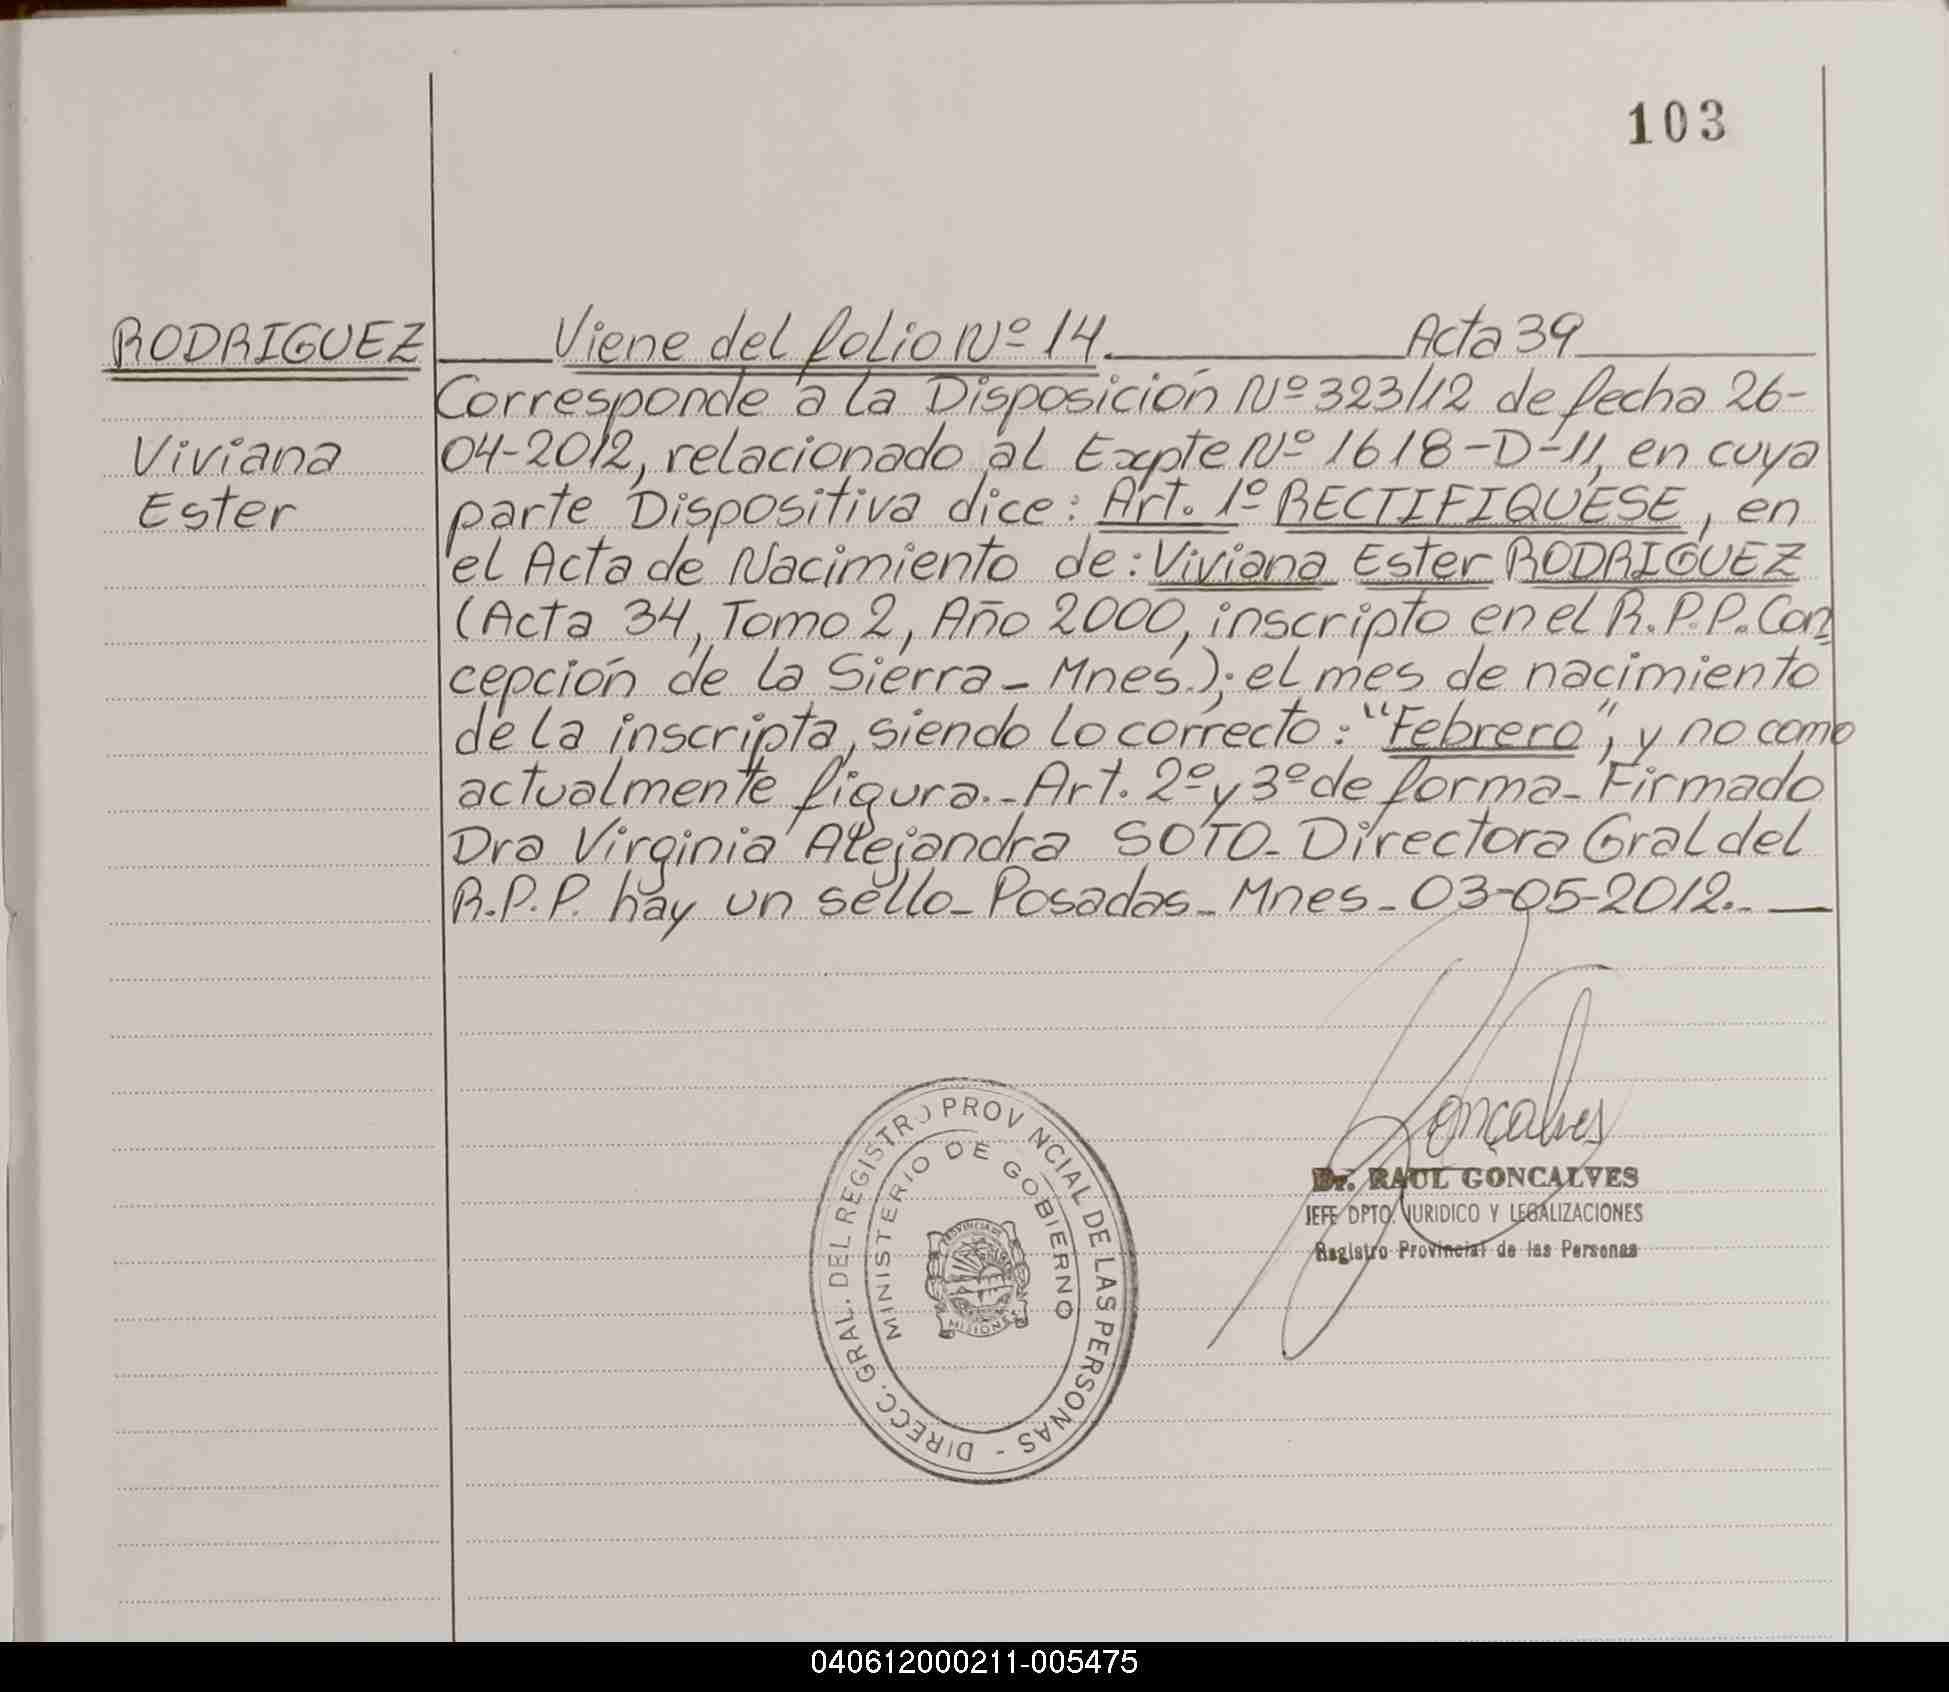 103
RODRIGUEZ
Viviana
Ester
Viene del folio Nº 14. Acta 39
Corresponde a la Disposición Nº 323/12 de fecha 26-
04-2012, relacionado al Expte Nº 1618-D-11, en cuya
parte Dispositiva dice: Art. 1º RECTIFIQUESE, en
el Acta de Nacimiento de: Viviana Ester RODRIGUEZ
(Acta 34, Tomo 2, Año 2000, inscripto en el R.P.P. Con
cepción de la Sierra - Mnes.); el mes de nacimiento
de la inscripta, siendo lo correcto: "Febrero", y no como
actualmente figura.- Art. 2º y 3º de forma - Firmado
Dra Virginia Alejandra SOTO - Directora Gral del
R.P.P. hay un sello - Posadas - Mnes - 03-05-2012.-
Goncalves
Dr. RAUL GONCALVES
JEFE DPTO. JURIDICO Y LEGALIZACIONES
Registro Provincial de las Personas
DIRECC. GRAL. DEL REGISTRO PROVINCIAL DE LAS PERSONAS -
MINISTERIO DE GOBIERNO
PROVINCIA DE
MISIONES
040612000211-005475